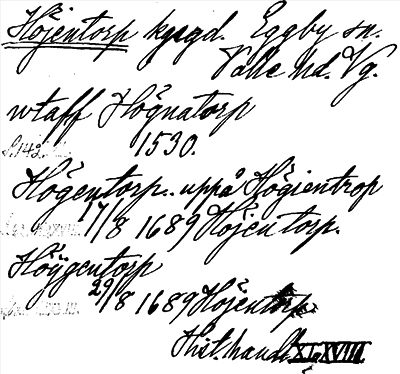 Höjentorp kgsgd. Eggby sn.
Valle hd. Vg.
wtaff Höghatorp
1530.
Högentorp.. uppå Högientrop
17/8 1689 Höjentorp.
Höÿgentorp
29/8 1689 Höjentorp
Hist. handl. XI, XVIII